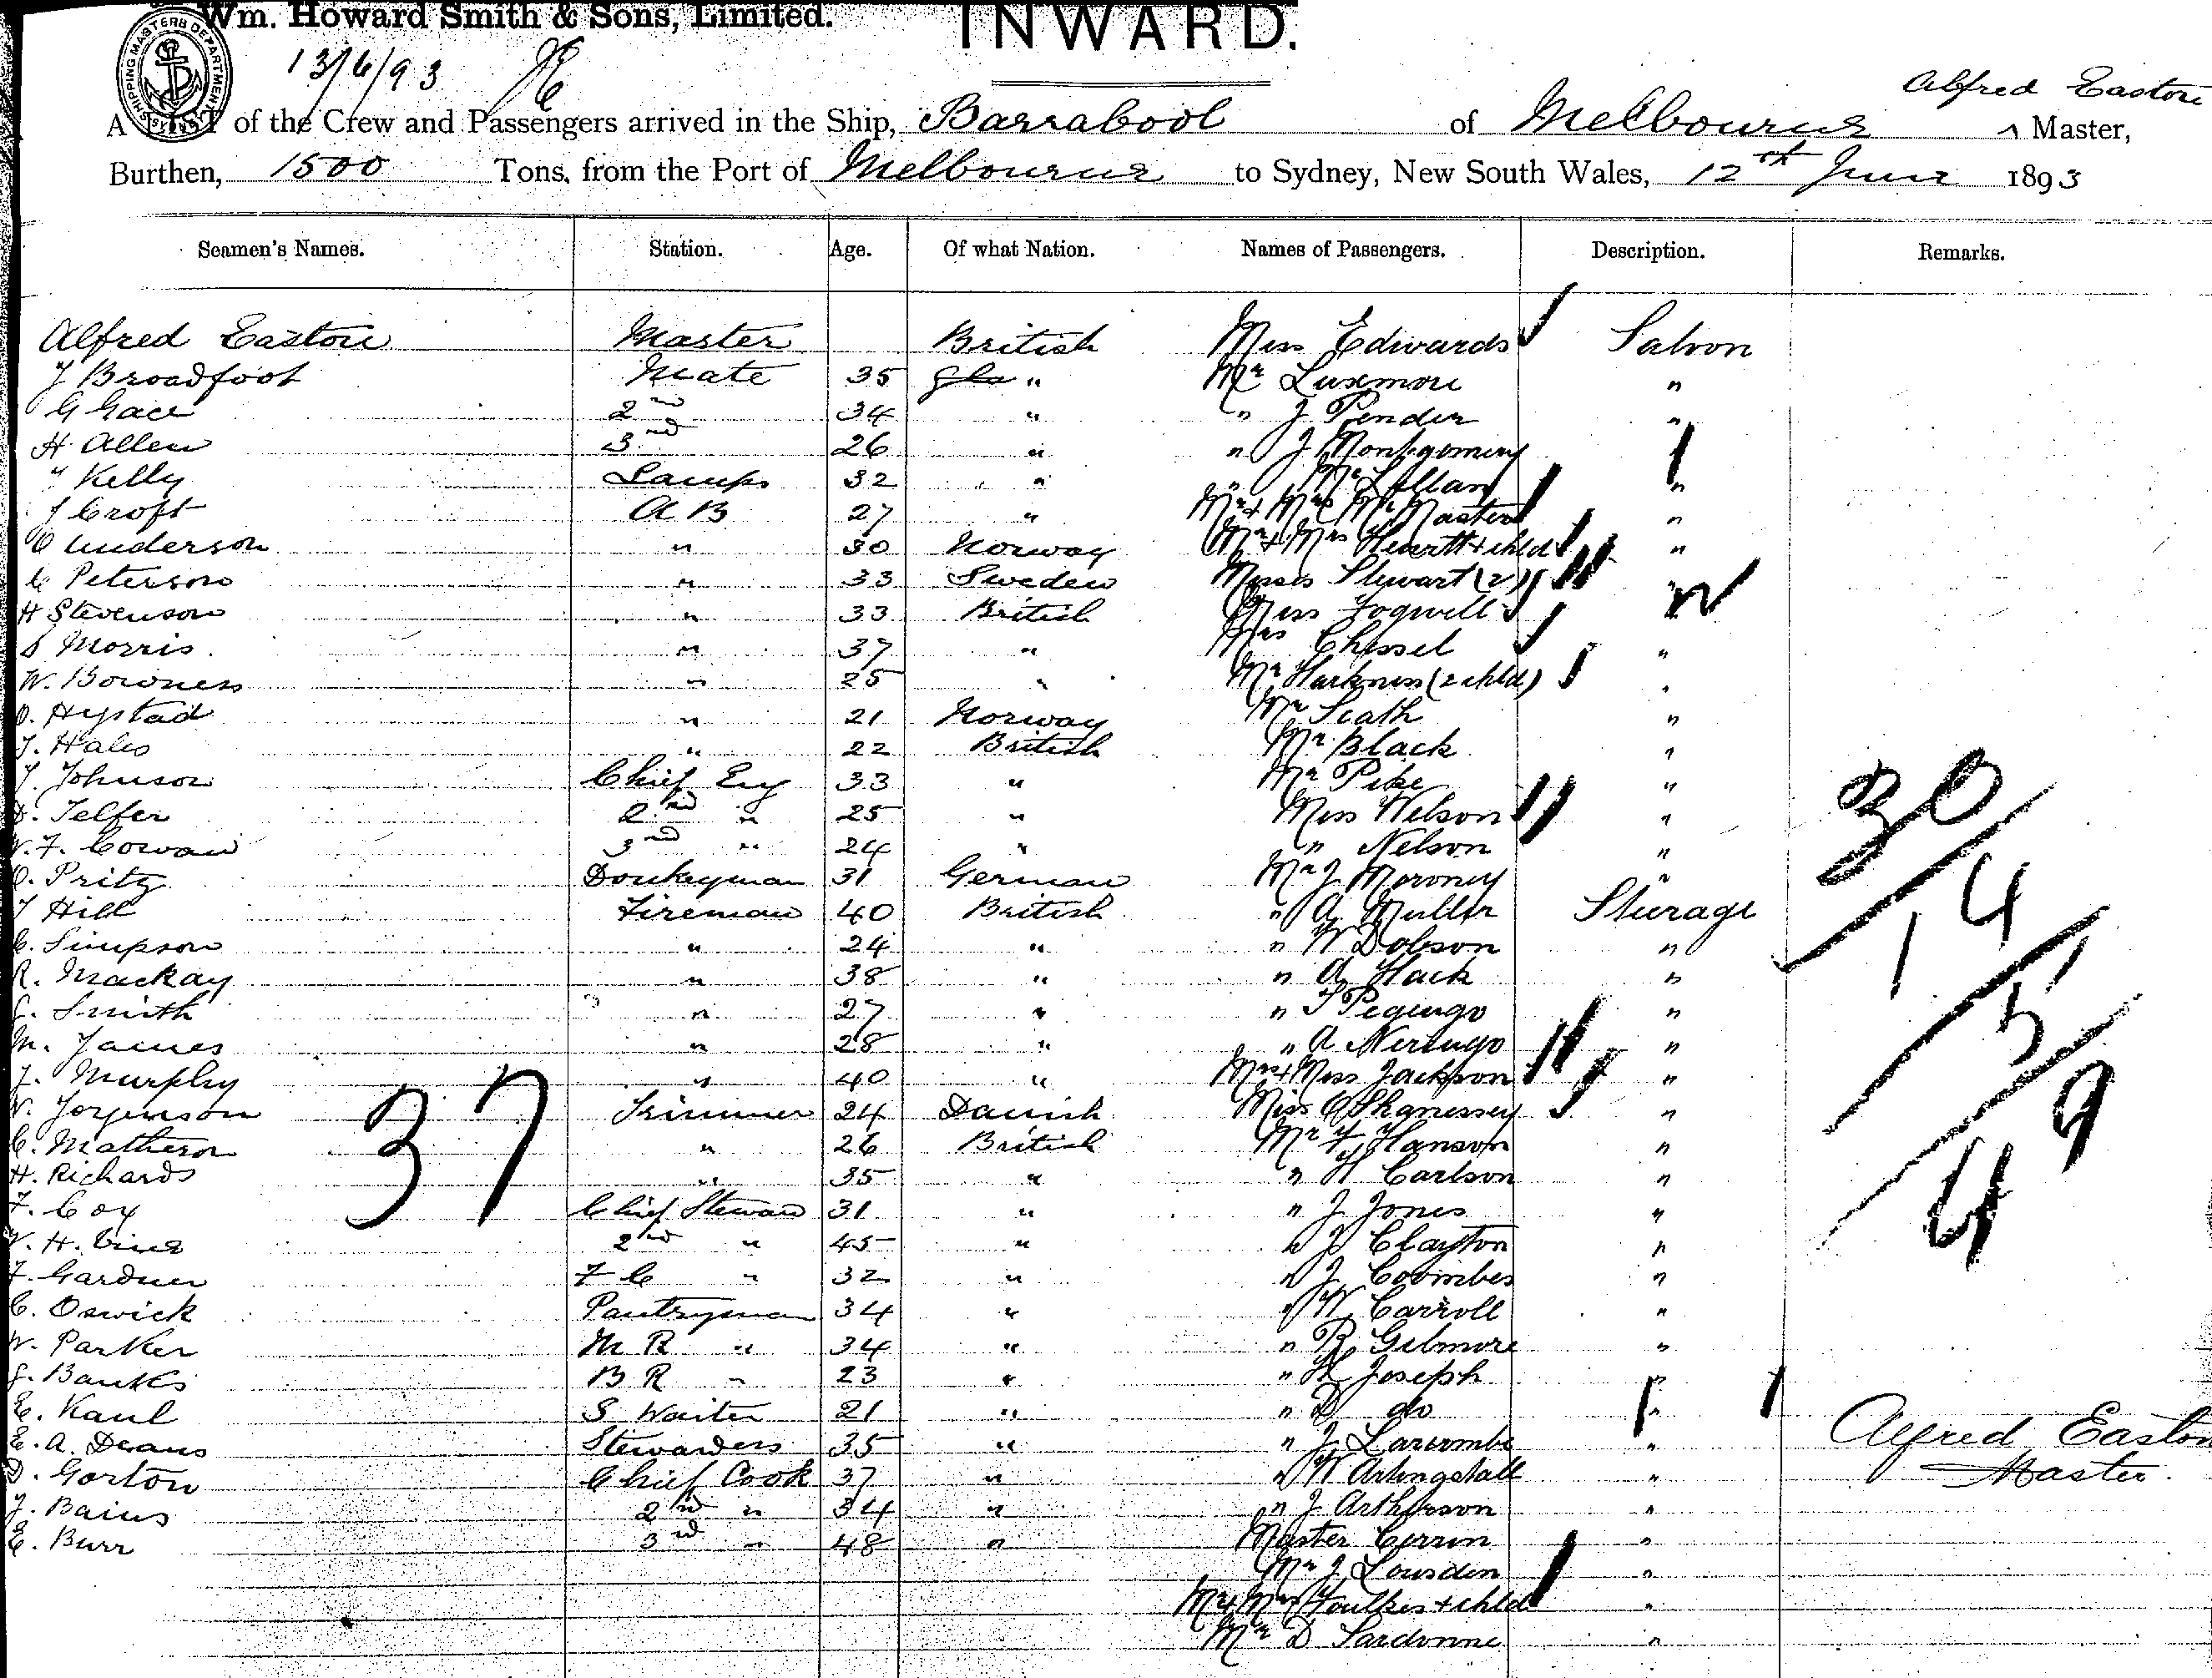 Wm. Howard Smith & Sons, Limited.
INWARD.
SHIPPING MASTERS DEPARTMENT
13/6/93
Alfred Easton
A LIST of the Crew and Passengers arrived in the Ship, Barrabool of Melbourne Master,
Burthen, 1500 Tons, from the Port of Melbourne to Sydney, New South Wales, 12th June 1893
Seamen's Names. Station. Age. Of what Nation. Names of Passengers. Description. Remarks.
Alfred Easton Master British Miss Edwards Saloon
J Broadfoot Mate 35 " Mr Luxmore "
G Grace 2nd 34 " " J. Pender "
H Allen 3rd 26 " " J Montgomery
" Kelly Lamps 32 " " "
J Croft A B 27 " Mr + Mrs McMaster "
C Anderson " 30 Norway Mr + Mrs Hewitt + child "
C Peterson " 33 Sweden Misses Stewart (2)
H Stevenson " 33 British Miss Fogwell "
S Morris. " 37 " Mrs Chessel "
W. Bowness " 25 " Mr Harkness (2 chld) "
O. Hystad " 21 Norway Mr Seath "
J. Hales " 22 British Mr Black "
J. Johnson Chief Eng 33 " Mr Pike "
D. Telfer 2nd " 25 " Miss Wilson "
W. F. Cowan 3rd " 24 " " Nelson "
O. Pritz Donkeyman 31 German Mr J Moroney "
J Hill Fireman 40 British " A. Muller Steerage
C. Simpson " 24 " " W Dobson "
R. Mackay " 38 " " A Hack "
G. Smith " 27 " " "
M. James " 28 " " A "
J. Murphy " 40 " Mrs + Miss Jackson "
W. Jorgenson Trimmer 24 Danish Miss O'Shanessey "
C. Matheson " 26 British Mr F Hanson "
H. Richards " 35 " " H Carlson "
F. Coy Chief Steward 31 " " J Jones "
W. H. Vine 2nd " 45 " " J Clayton "
F. Gardner F C " 32 " " J. Coombes "
C. Oswick Pantryman 34 " " W. Carroll "
W. Parker M R " 34 " " R. Gilmore "
G. Banks B R " 23 " " H Joseph "
E. Kaul S Waiter 21 " " D do "
E. A. Deans Stewardess 35 " " J. Larcombe "
D. Gorton Chief Cook 37 " " W Artingstall "
J. Bains 2nd " 34 " " J Artherson "
E. Burr 3rd " 48 " Master Curran "
Mr J. Lousden "
Mr + Mrs Foulkes + child "
Mr D Sardonne "
37
30
14
5
49
Alfred Easton
Master.